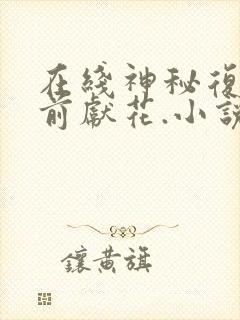 在綫神秘復
前獻花.小説
鑲黃旗